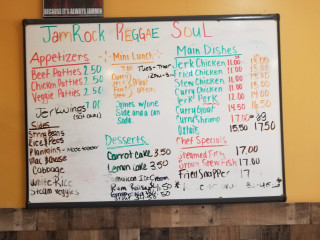 BECAUSE IT'S ALWAYS JAMMIN
JamRock Reggae Soul
Appetizers
Beef Patties 2.50
Chicken Patties 2.50
Veggie Patties 2.50
Jerk Wings 7.01
Sides
String Beans
Rice & Peas
Plantains
Mac & cheese
Cabbage
White Rice
Steam veggies
Mini Lunch
7.00 Tues-Thur
Comes w/one
Side and a can
Soda
Desserts
Carrot cake 3.50
Lemon cake 3.50
Jamaican Ice Cream
Rum Raisin 4.50
Main Dishes
Jerk Chicken 11.00
Fried Chicken 11.00
Stew Chicken 11.00
Curry Chicken 11.00
Jerk Pork 12.00
Curry Goat 14.50
Curry Shrimp 17.00
Oxtails 15.50 17.50
Chef Specials
Steamed Fish 17.00
Brown Stew Fish 17.00
Fried Snapper 17